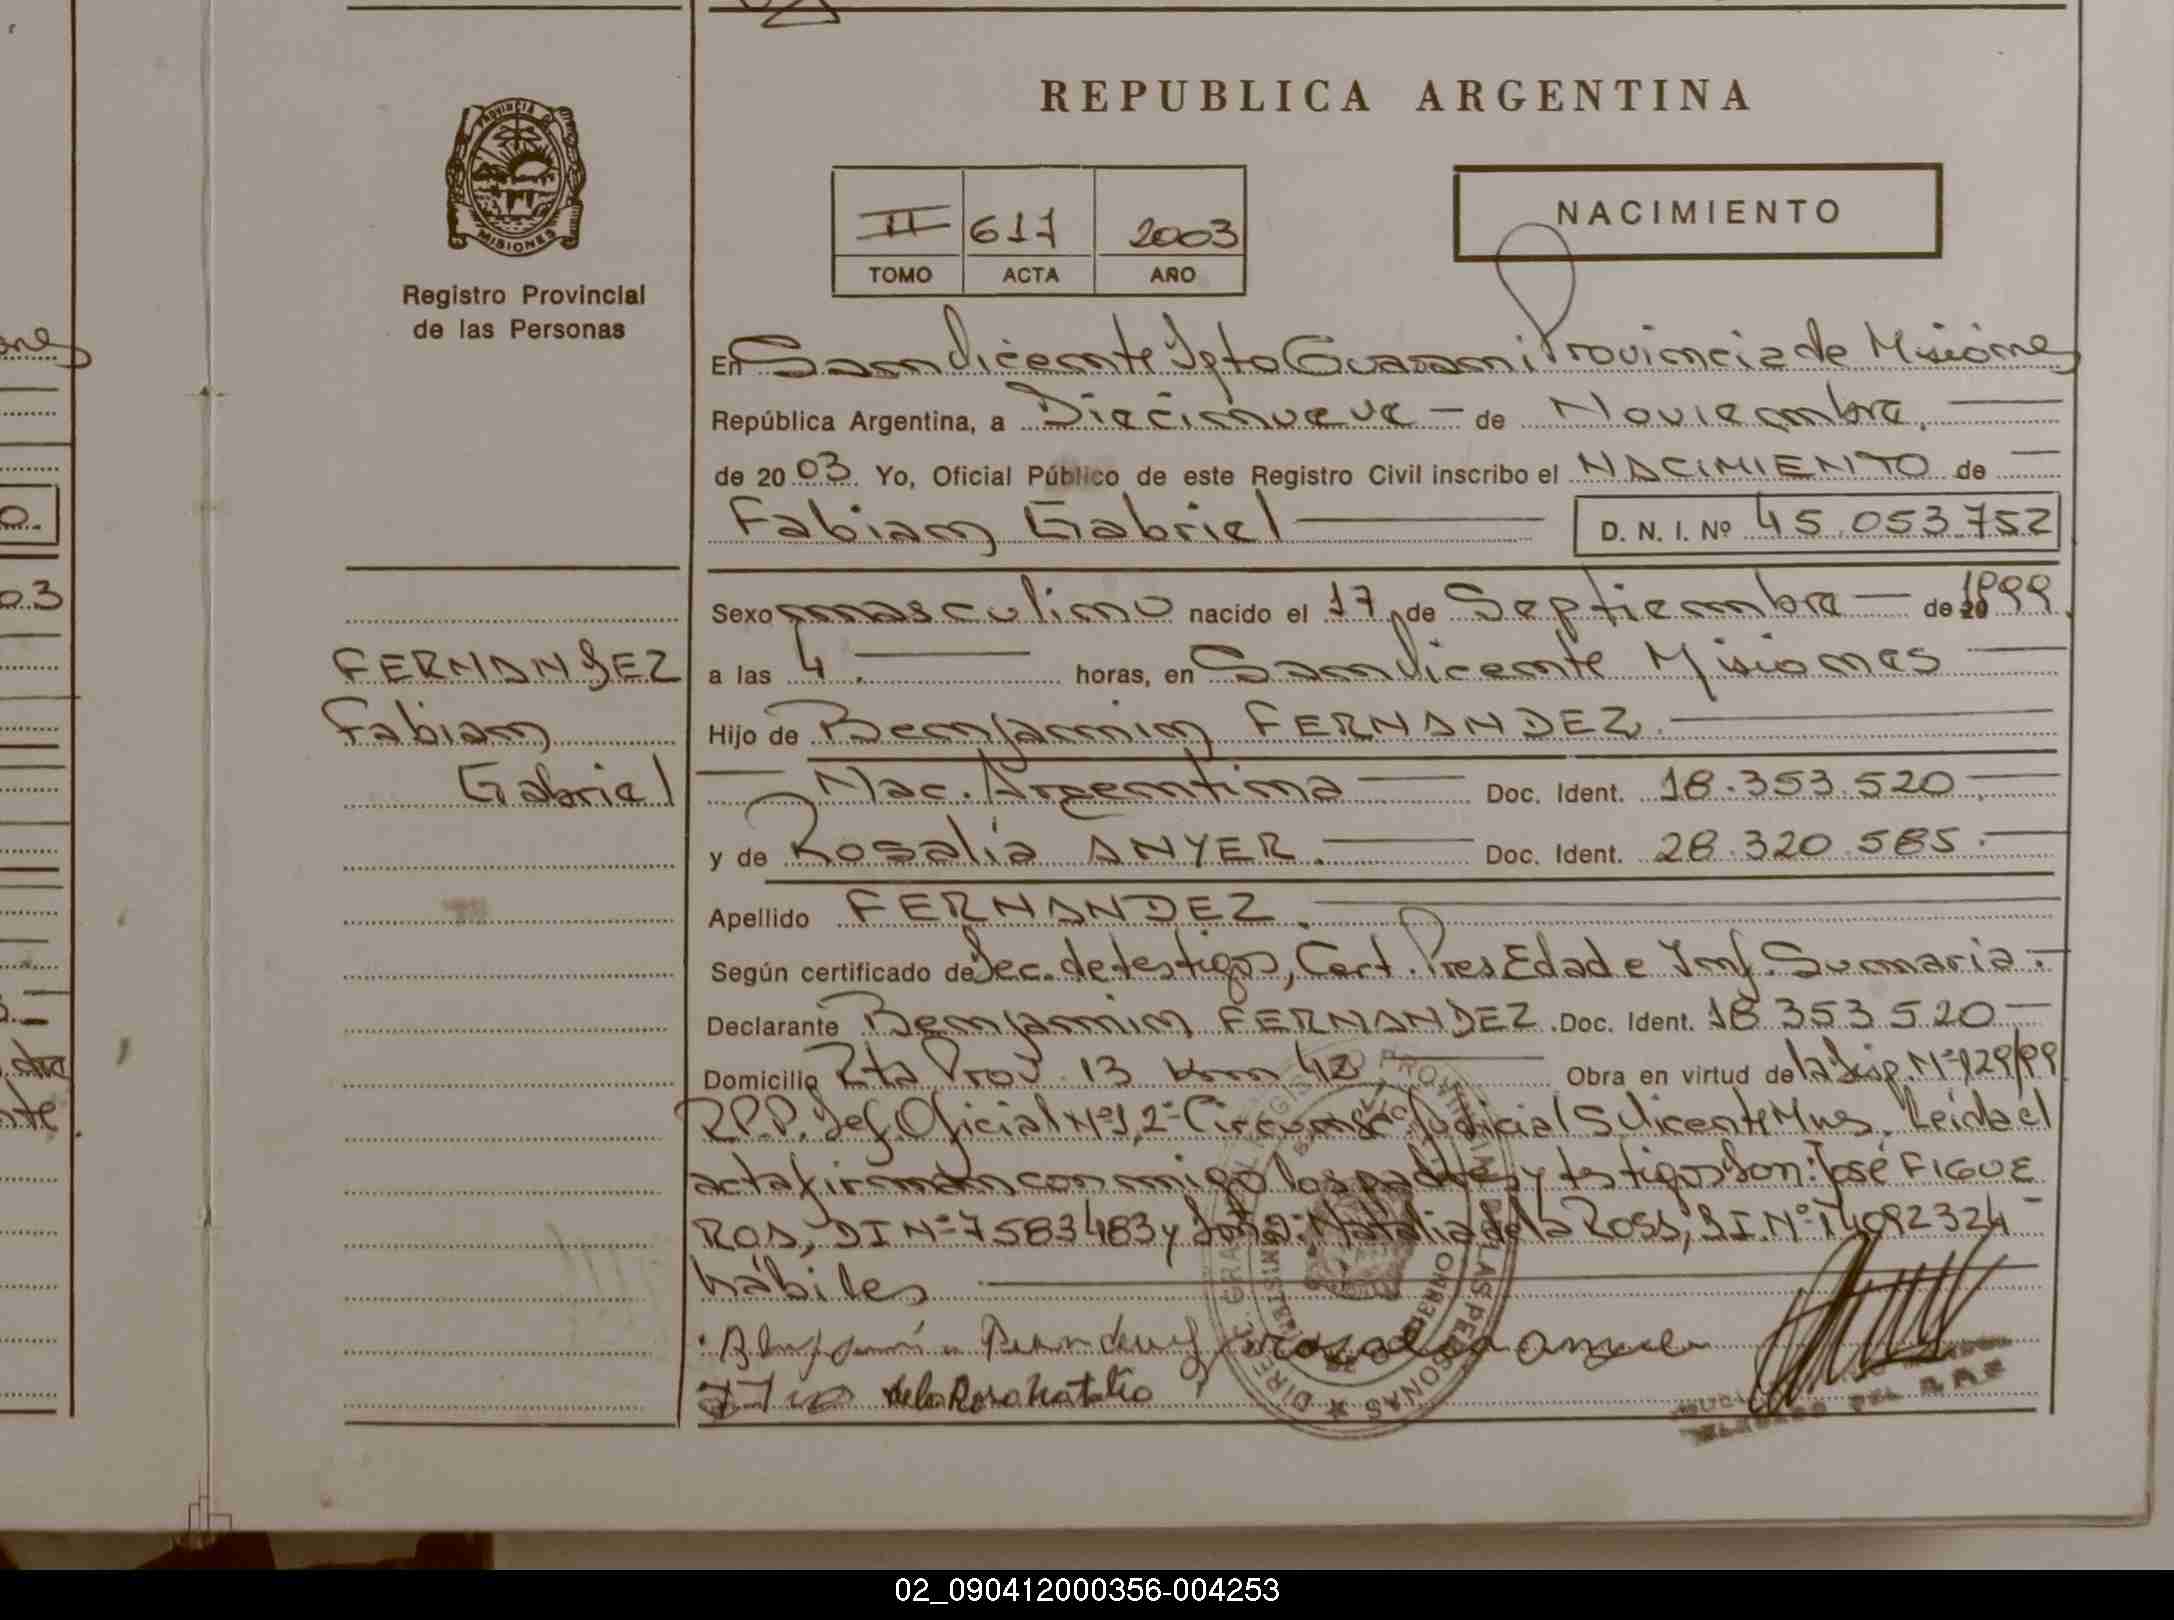 REPUBLICA ARGENTINA
PROVINCIA DE
MISIONES
Registro Provincial
de las Personas
II 617 2003
TOMO ACTA AÑO
NACIMIENTO
En San Vicente Dpto Guarani Provincia de Misiones
República Argentina, a Diecinueve — de Noviembre,
de 2003. Yo, Oficial Público de este Registro Civil inscribo el NACIMIENTO de
Fabian Gabriel D. N. I. Nº 45.053.752
Sexo masculino nacido el 17 de Septiembre — de 20 1999.
FERNANDEZ
Fabian
Gabriel
a las 4. horas, en San Vicente Misiones
Hijo de Benjamin FERNANDEZ.
Nac. Argentina Doc. Ident. 18.353.520
y de Rosalia ANYER. Doc. Ident. 28.320.585.
Apellido FERNANDEZ.
Según certificado de Dec. de testigos, Cert. Pres Edad e Inf. Sumaria.-
Declarante Benjamin FERNANDEZ. Doc. Ident. 18 353 520
Domicilio Rta Prov. 13 km 42 Obra en virtud de la Disp. Nº 129/99
R.P.P. Def. Oficial Nº 1, 2º Circunsc. Judicial S Vicente Mnes. Leida el
acta firman conmigo los padres y testigos Son: José FIGUE
ROA, DI Nº 7583483 y Natalia de la Rosa, DI. Nº 14092324
hábiles
de la Rosa Natalio
02_090412000356-004253